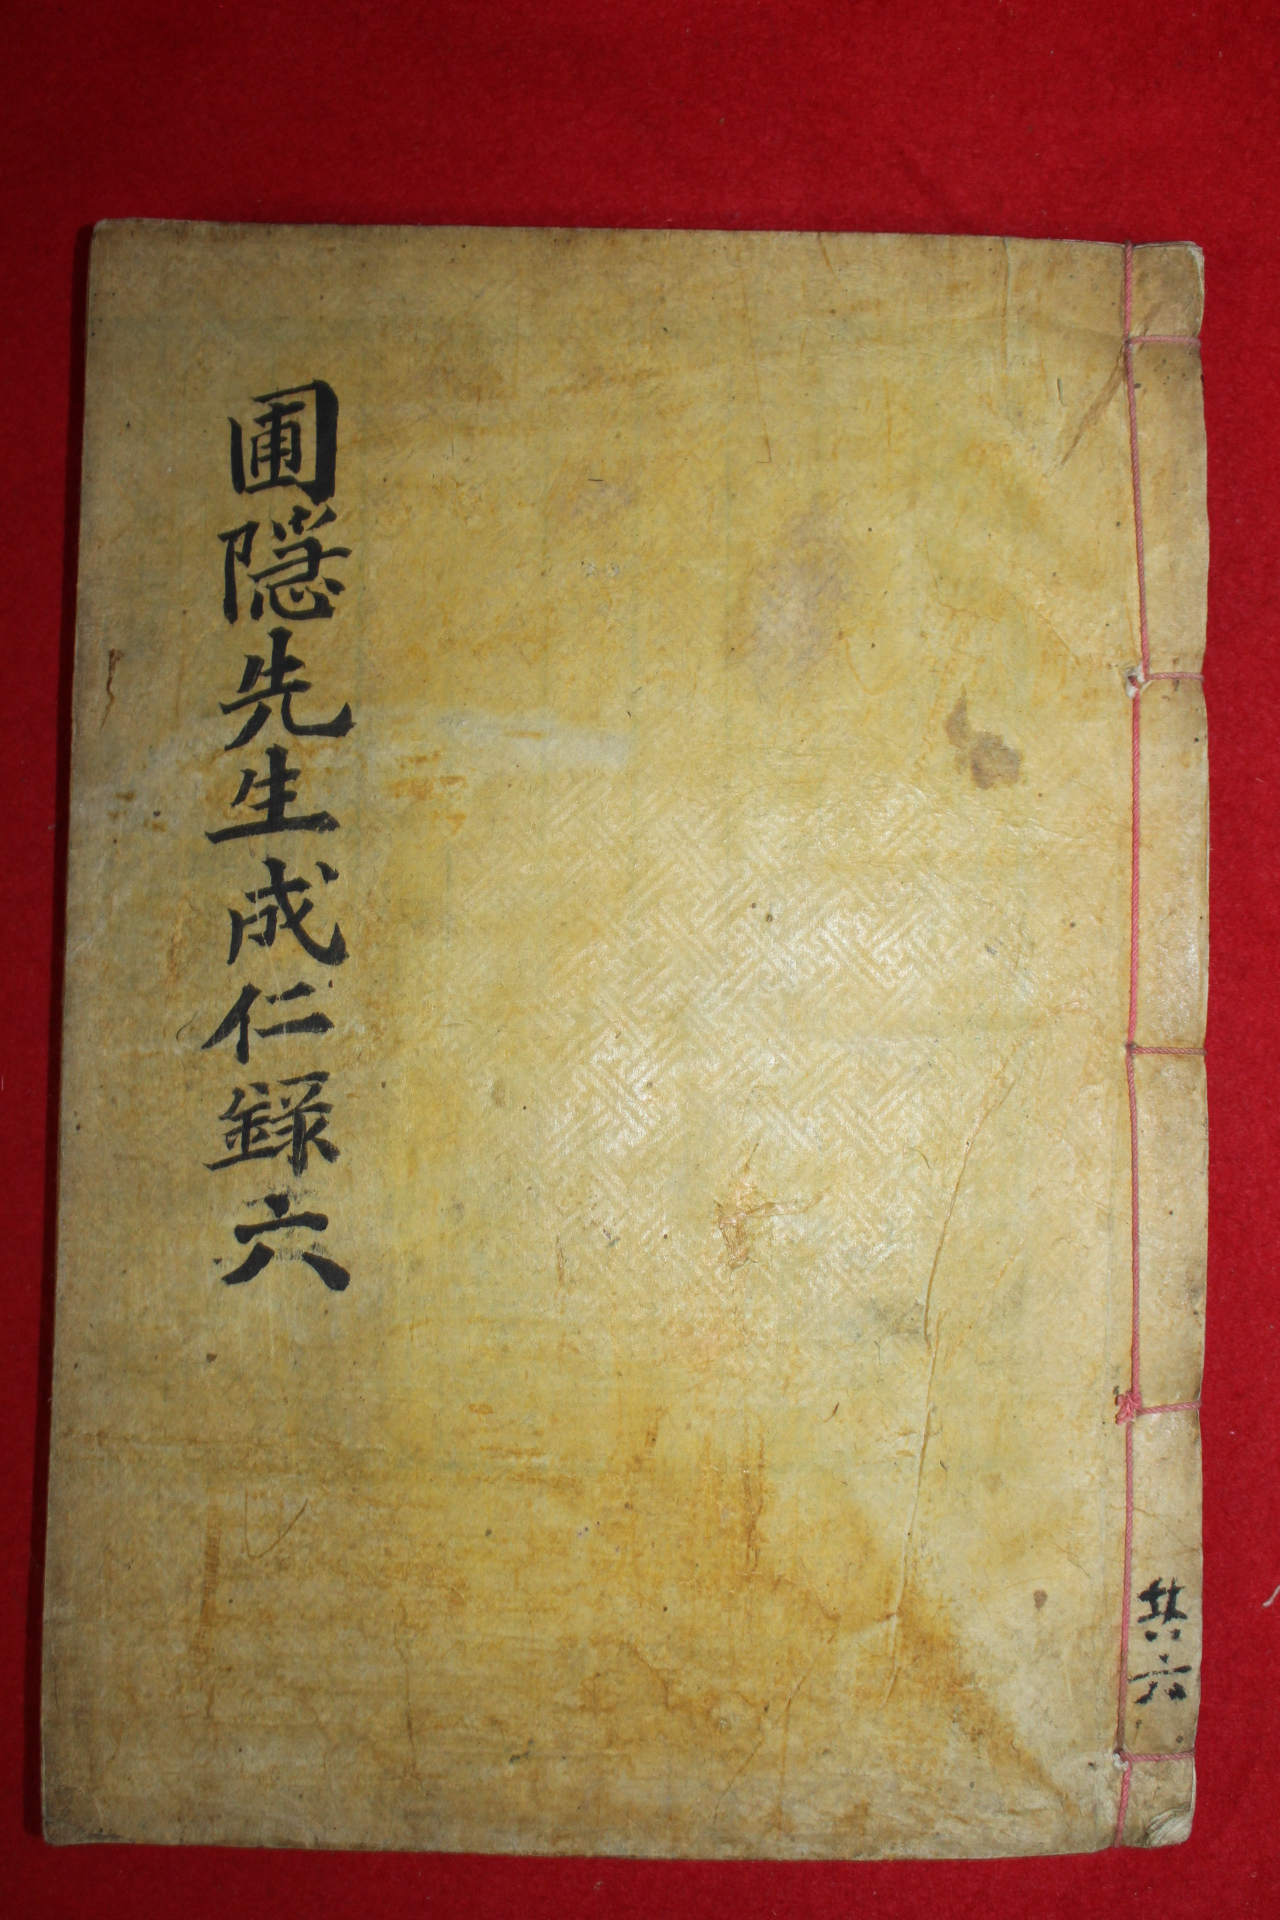 圃隱先生成仁錄六
共六